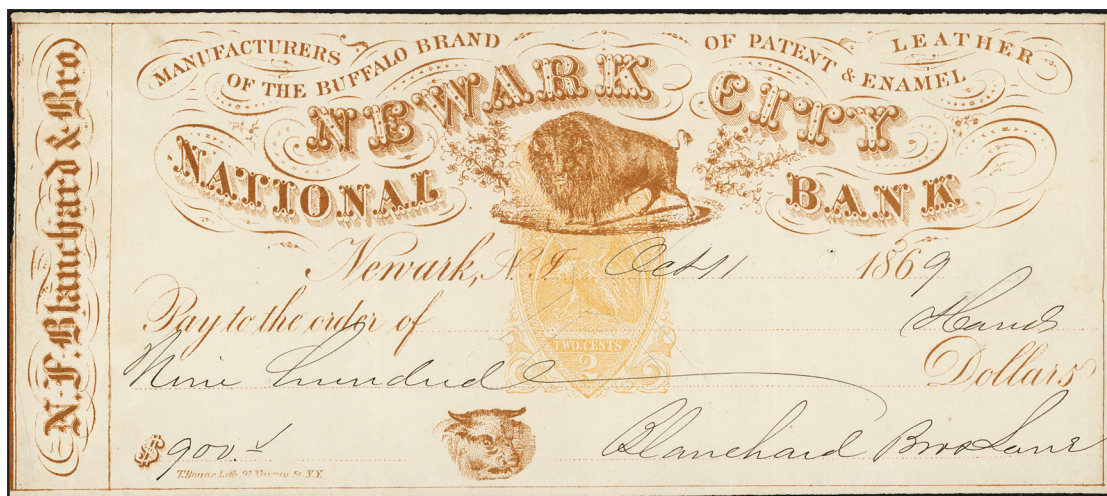 N. F. Blanchard & Bro.
MANUFACTURERS OF THE BUFFALO BRAND OF PATENT & ENAMEL LEATHER
NEWARK CITY
NATIONAL BANK
Newark, N.J. Oct 11 1869
Pay to the order of Hands
Nine hundred Dollars
TWO CENTS
2
$900.
Blanchard Bro & Lane
T. Bonar Lith. 97 Nassau St. N.Y.